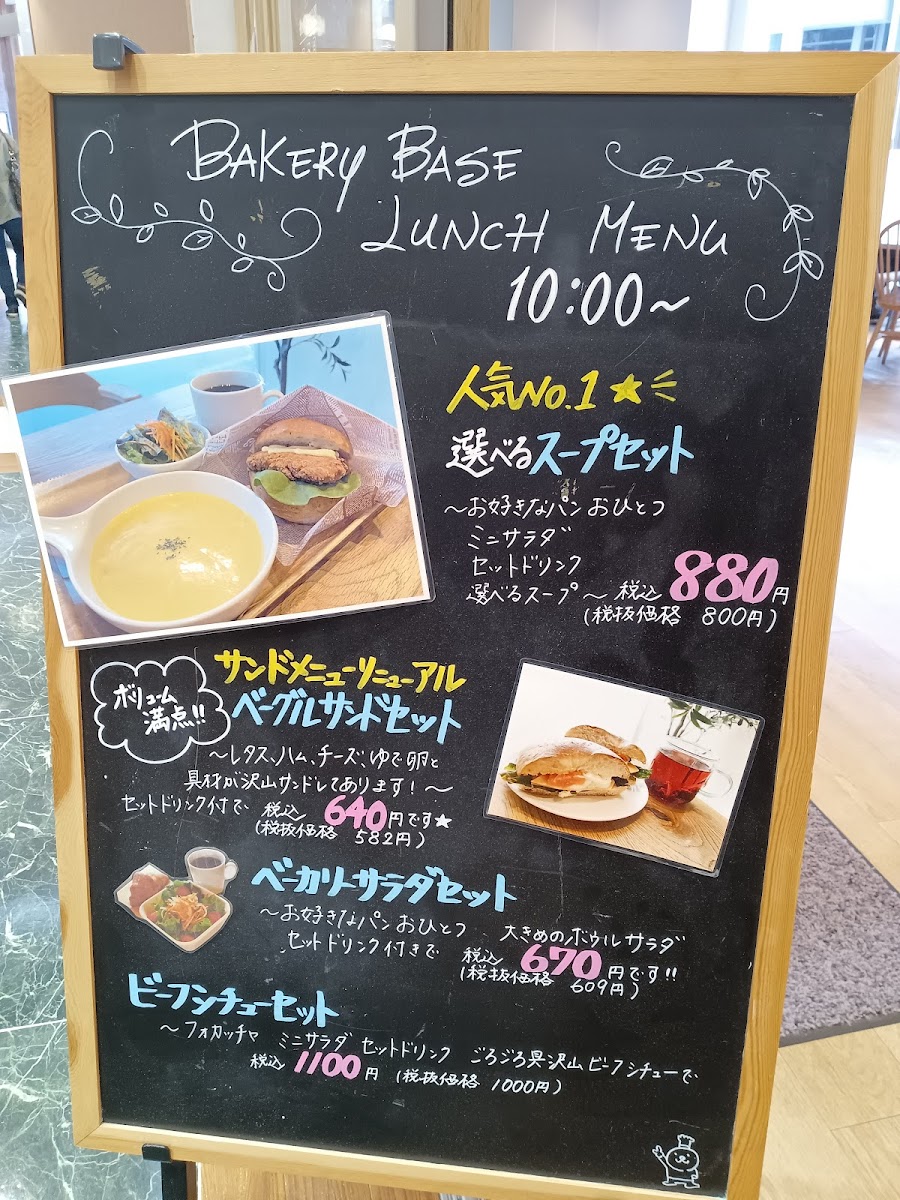 BAKERY BASE
LUNCH MENU
10:00～
人気No.1★
選べるスープセット
～お好きなパン おひとつ
ミニサラダ
セットドリンク
選べるスープ～ 税込 880円
(税抜価格 800円)
ボリューム
満点!!
サンドメニューリニューアル
ベーグルサンドセット
～レタス、ハム、チーズ、ゆで卵と
具材が沢山サンドしてあります!～
セットドリンク付で 税込 640円です★
(税抜価格 582円)
ベーカリーサラダセット
～お好きなパン おひとつ 大きめのボウルサラダ
セットドリンク付きで 税込 670円です!!
(税抜価格 609円)
ビーフシチューセット
～フォカッチャ ミニサラダ セットドリンク ごろごろ具沢山ビーフシチューで
税込 1100円 (税抜価格 1000円)